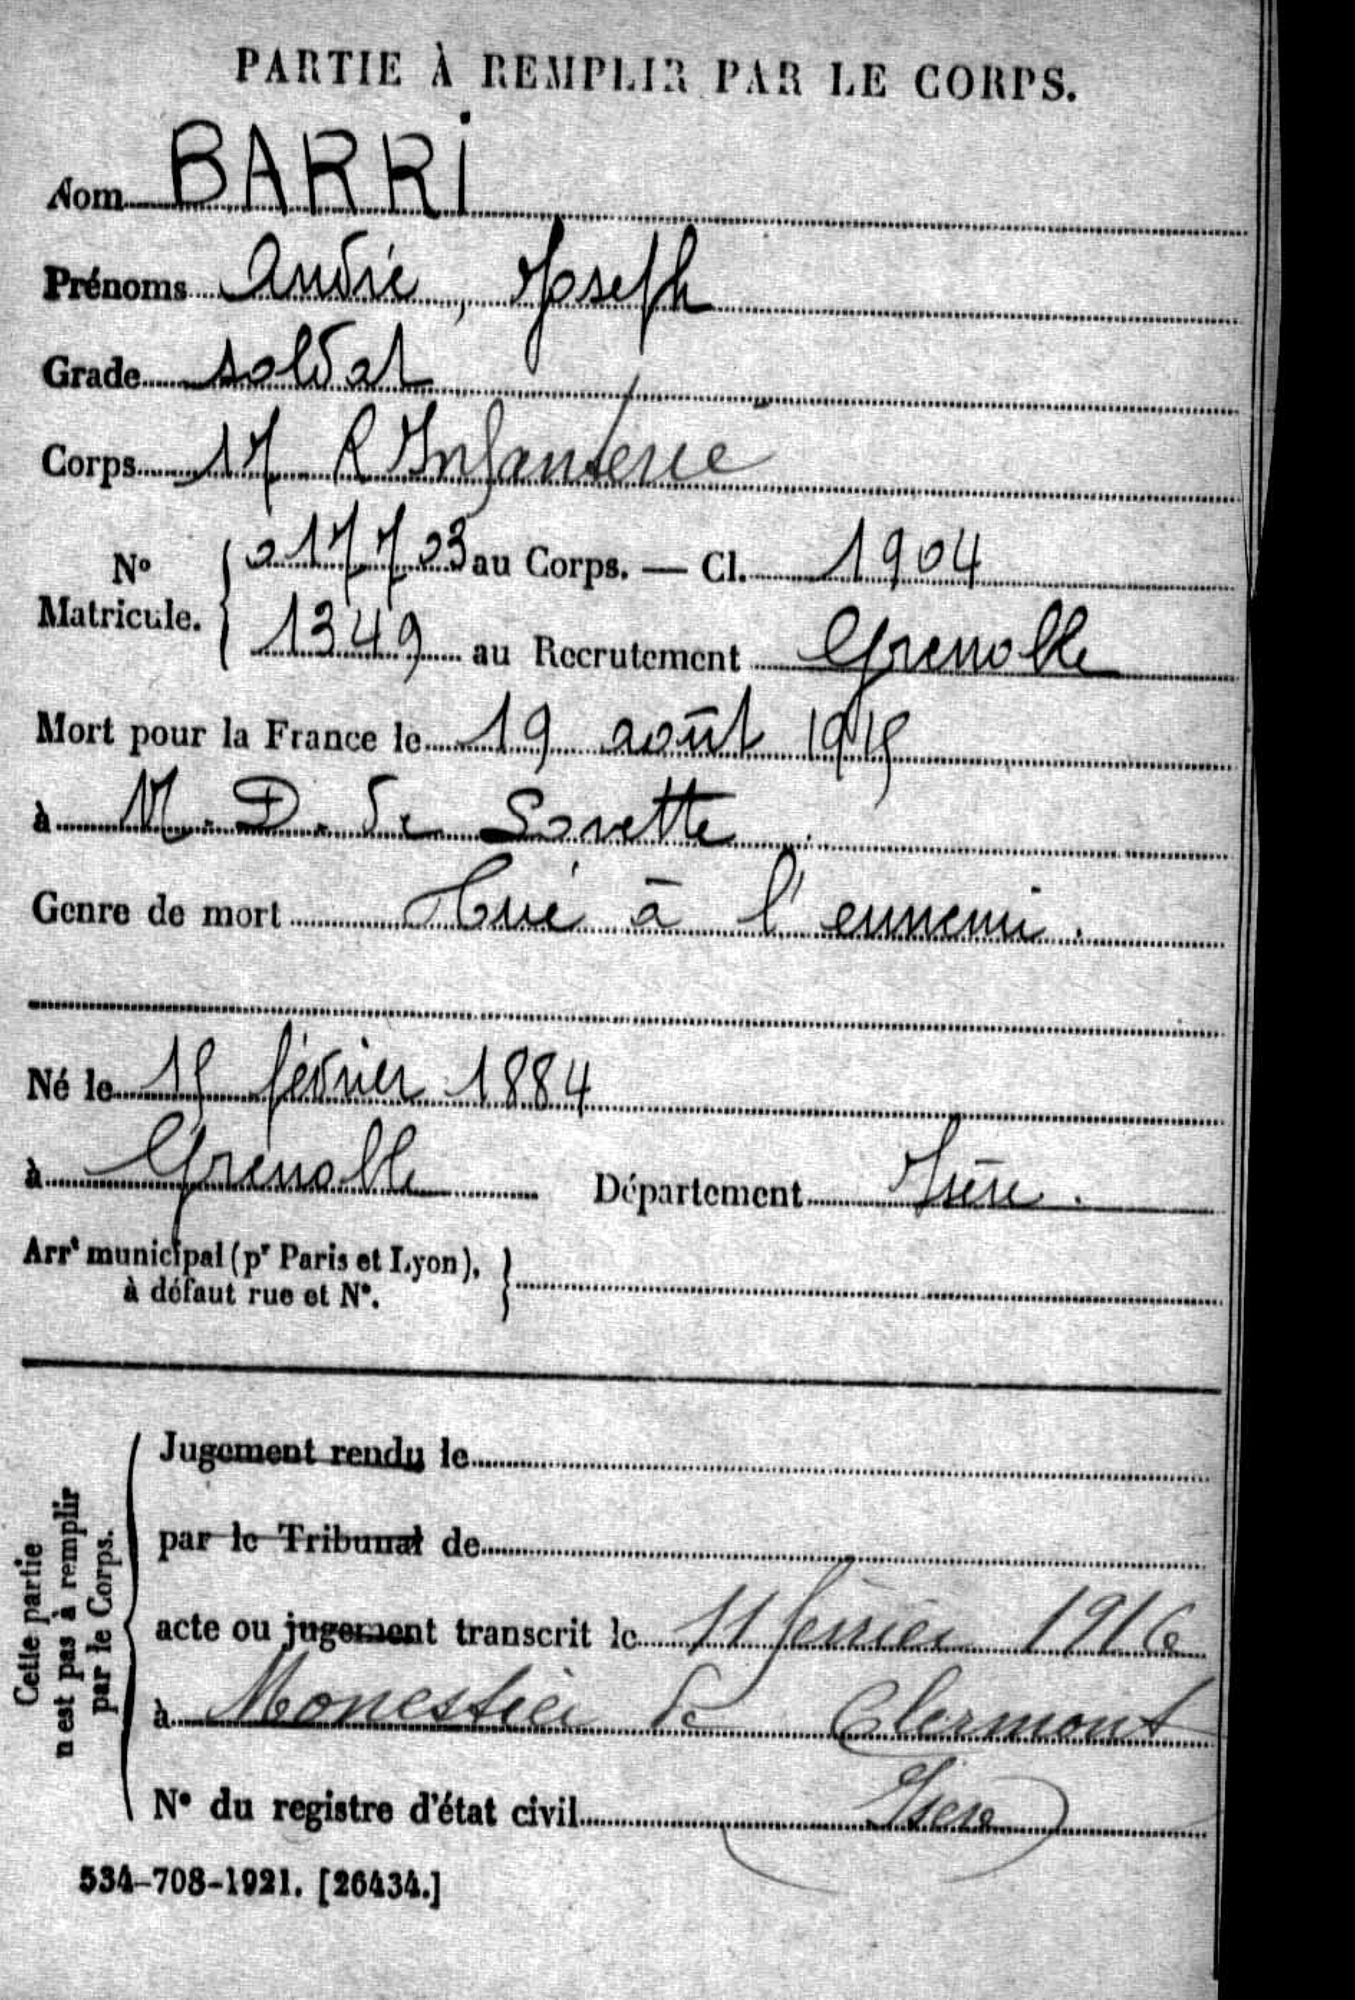 PARTIE À REMPLIR PAR LE CORPS.
Nom BARRI
Prénoms André, Joseph
Grade soldat
Corps 17 R Infanterie
No Matricule. { 017703 au Corps. — Cl. 1904
1349 au Recrutement Grenoble
Mort pour la France le 19 août 1915
à N. D. de Lorette
Genre de mort Tué à l'ennemi.
Né le 15 février 1884
à Grenoble Département Isère.
Arrt municipal (pr Paris et Lyon), à défaut rue et No. }
Cette partie n'est pas à remplir par le Corps.
Jugement rendu le
par le Tribunal de
acte ou jugement transcrit le 11 février 1916
à Monestier de Clermont
No du registre d'état civil Isère
534-708-1921. [26434.]